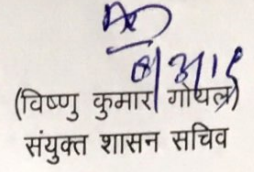 (विष्णु कुमार गोयल)
संयुक्त शासन सचिव